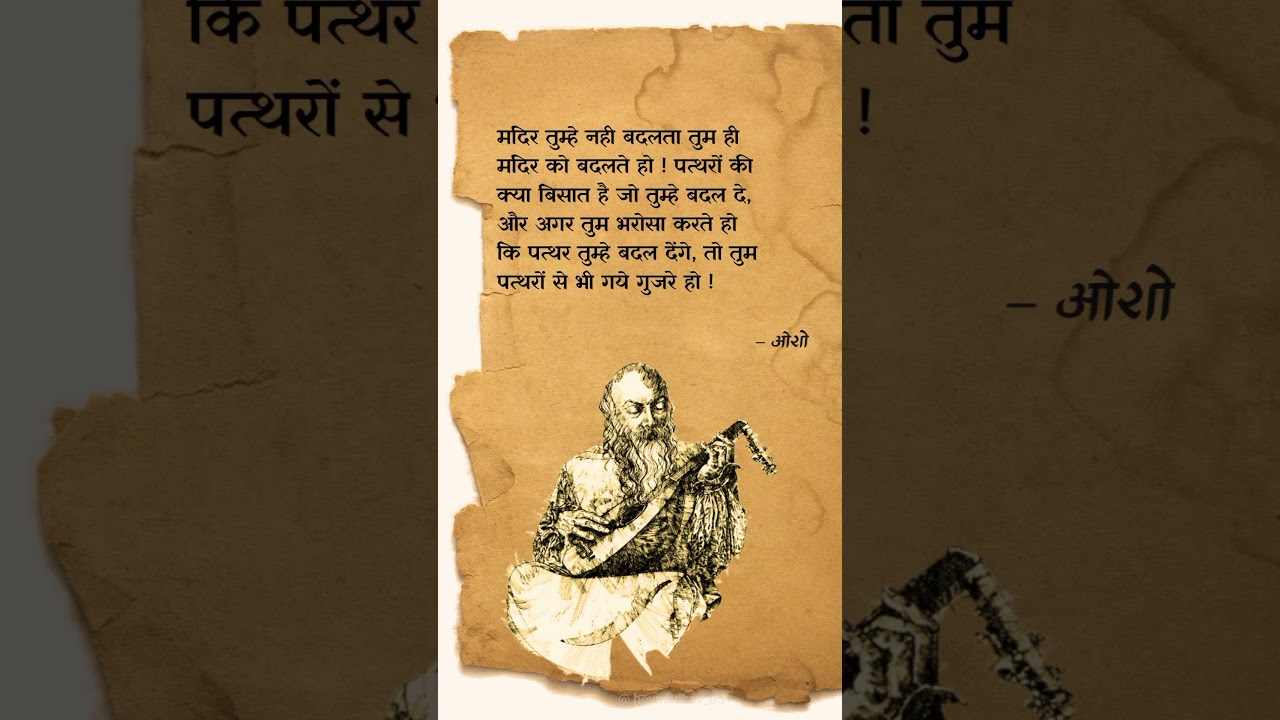 कि पत्थर
पत्थरों से
तो तुम
!
– ओशो
मदिर तुम्हे नही बदलता तुम ही
मदिर को बदलते हो ! पत्थरों की
क्या बिसात है जो तुम्हे बदल दे,
और अगर तुम भरोसा करते हो
कि पत्थर तुम्हे बदल देंगे, तो तुम
पत्थरों से भी गये गुजरे हो !
– ओशो